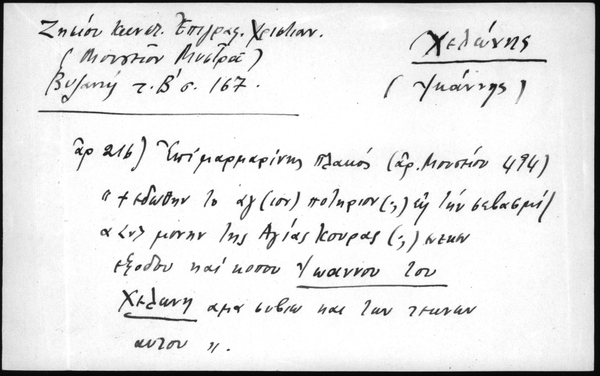 Ζησίου Κωνστ. Επιγραφ. Χριστιαν.
(Μουσεῖον Μυστρᾶ)
Βυζαντὶς τ. Β΄ σ. 167.
Χελώνης
(Ἰωάννης)
ἀρ 216) Ἐπὶ μαρμαρίνης πλακός (ἀρ. Μουσείου 494)
" + εδωθην το αγ(ιον) ποτηριον (;) εἰς τὴν σεβασμί
α μονην της Αγίας Κουρας (;)
εξοδου και κοπου Ιωαννου του
Χελωνη αμα συβιω και των τεκνων
αυτου ".